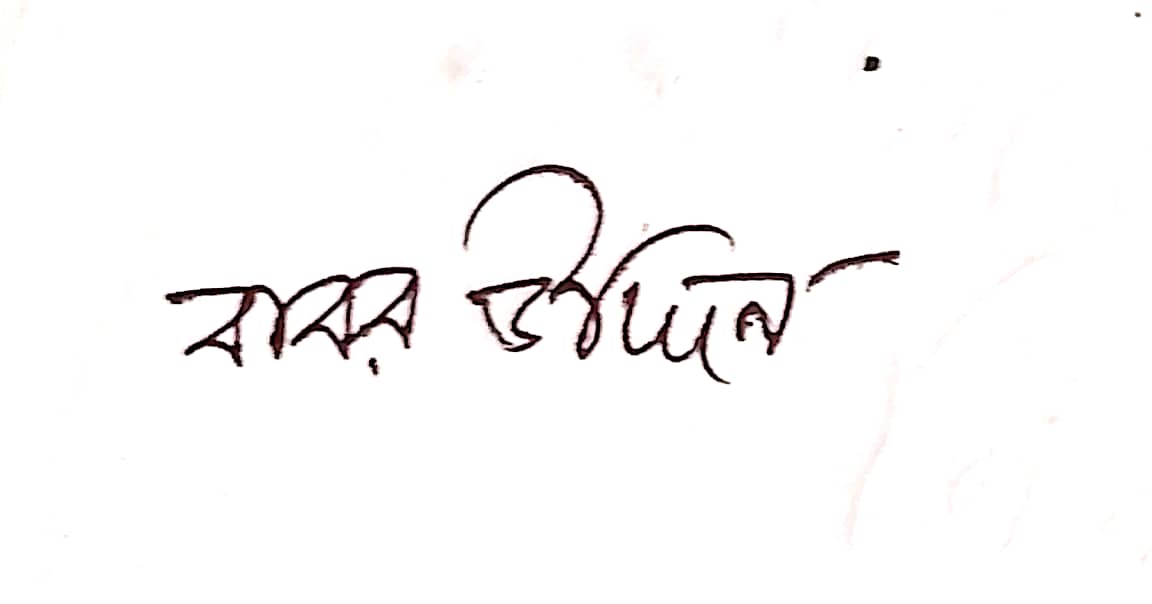 বাবর উদ্দিন